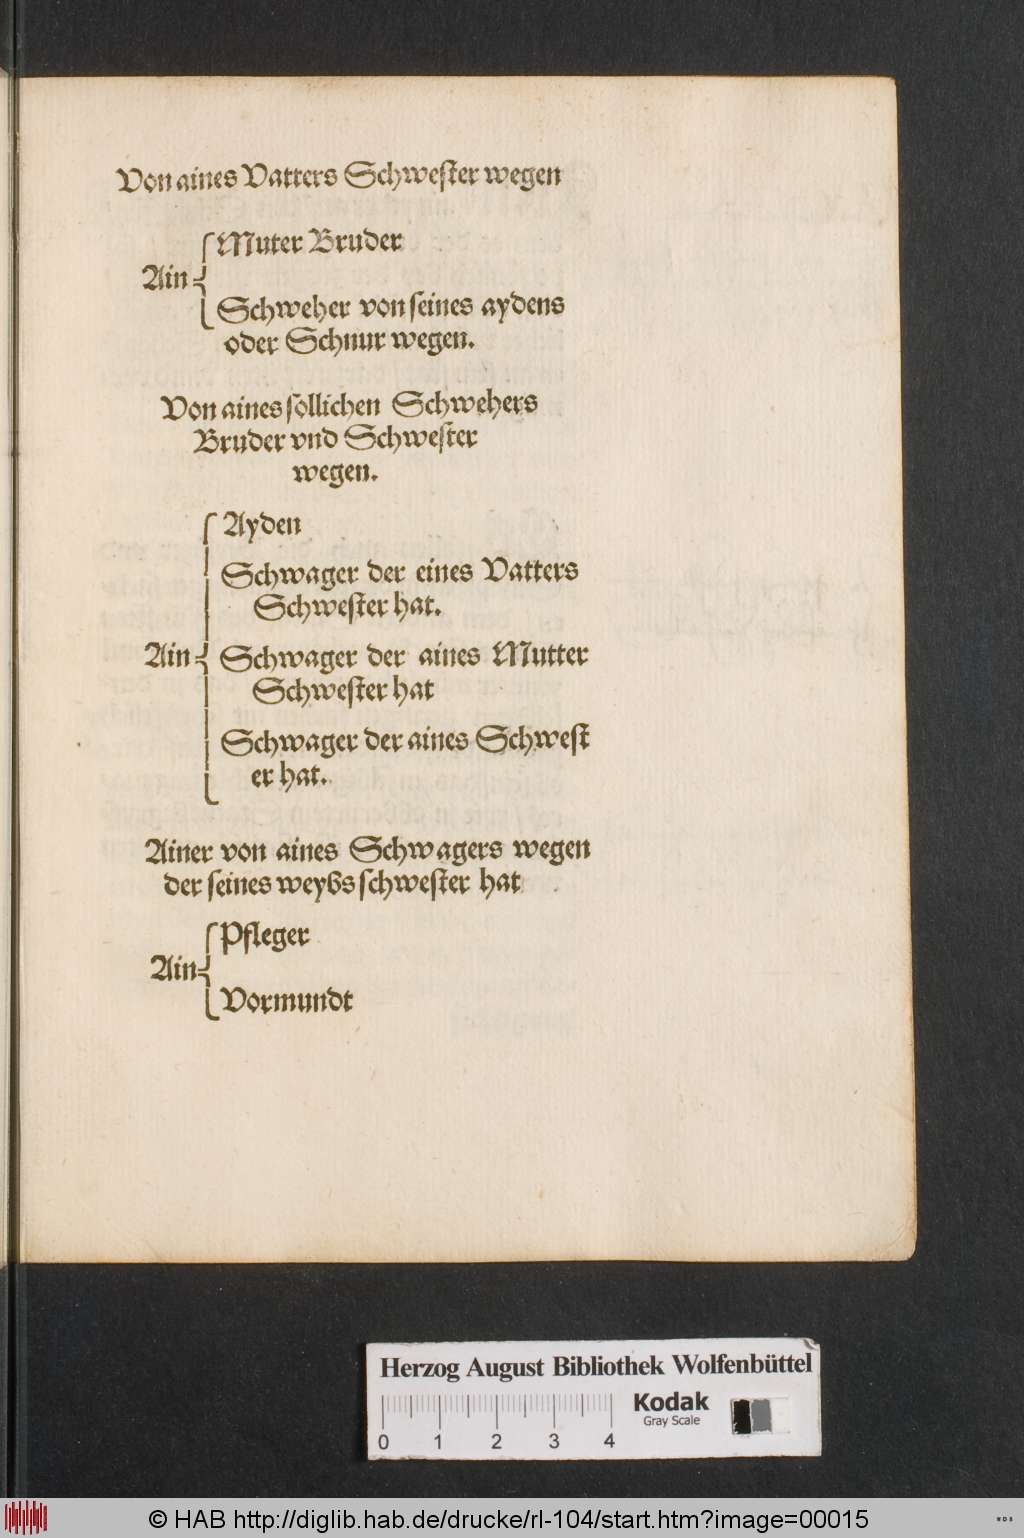 Von aines Vatters Schwester wegen
Muter Bruder
Ain
Schweher von seines aydens
oder Schnur wegen.
Von aines sollichen Schwehers
Bruder vnd Schwester
wegen.
Ayden
Schwager der eines Vatters
Schwester hat.
Ain Schwager der aines Mutter
Schwester hat
Schwager der aines Schwest
er hat.
Ainer von aines Schwagers wegen
der seines weybs schwester hat
Pfleger
Ain
Vormundt
Herzog August Bibliothek Wolfenbüttel
Kodak
Gray Scale
0 1 2 3 4
© HAB http://diglib.hab.de/drucke/rl-104/start.htm?image=00015